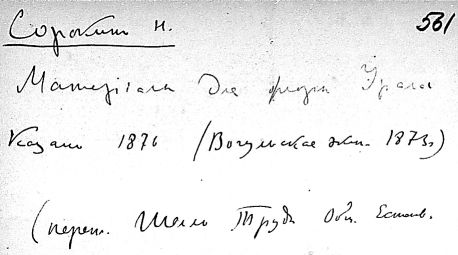 Сорокин Н. 561
Матеріалы для флоры Урала
Казань 1876 (Вогульская экс. 1873)
(переп. Труды Общ. Естеств.